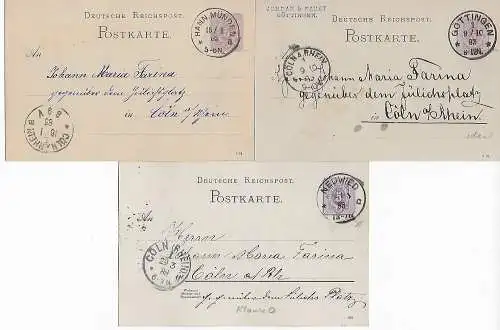 DEUTSCHE REICHSPOST.
POSTKARTE.
HANN. MÜNDEN
5-6N.
An
Johann Maria Farina
gegenüber dem Jülichsplatz
in Cöln a/Rhein.
CÖLN (RHEIN)
JORDAN & FAUST
GÖTTINGEN.
DEUTSCHE REICHSPOST.
POSTKARTE.
GÖTTINGEN
CÖLN A. RHEIN
Johann Maria Farina
gegenüber dem Jülichsplatz
in Cöln a/Rhein.
DEUTSCHE REICHSPOST.
POSTKARTE.
NEUWIED
An
Herrn
Johann Maria Farina
Cöln a/Rh
gegenüber dem Jülichs Platz
CÖLN (RHEIN)
Klaucke